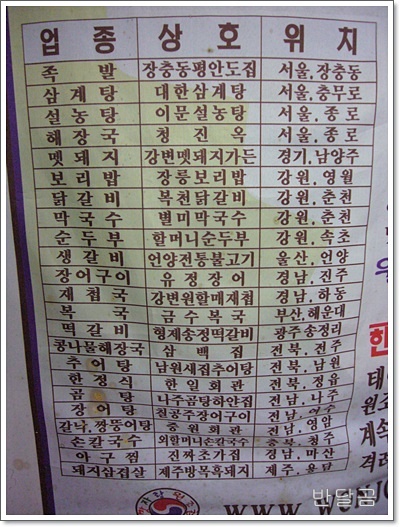 업종 상호 위치
족발 장충동평안도집 서울,장충동
삼계탕 대한삼계탕 서울,충무로
설농탕 이문설농탕 서울,종로
해장국 청진옥 서울,종로
멧돼지 강변멧돼지가든 경기,남양주
보리밥 장릉보리밥 강원,영월
닭갈비 복천닭갈비 강원,춘천
막국수 별미막국수 강원,춘천
순두부 할머니순두부 강원,속초
생갈비 언양전통불고기 울산,언양
장어구이 유정장어 경남,진주
재첩국 강변원할매재첩 경남,하동
복국 금수복국 부산,해운대
떡갈비 형제송정떡갈비 광주송정리
콩나물해장국 삼백집 전북,전주
추어탕 남원새집추어탕 전북,남원
한정식 한일회관 전북,정읍
곰탕 나주곰탕하얀집 전남,나주
장어탕 칠공주장어구이 전남,여수
갈낙,짱뚱어탕 중원회관 전남,영암
손칼국수 외할머니손칼국수 충북,청주
아구찜 진짜초가집 경남,마산
돼지삼겹살 제주방목흑돼지 제주,용담
한
원조
계속
격려
반달곰